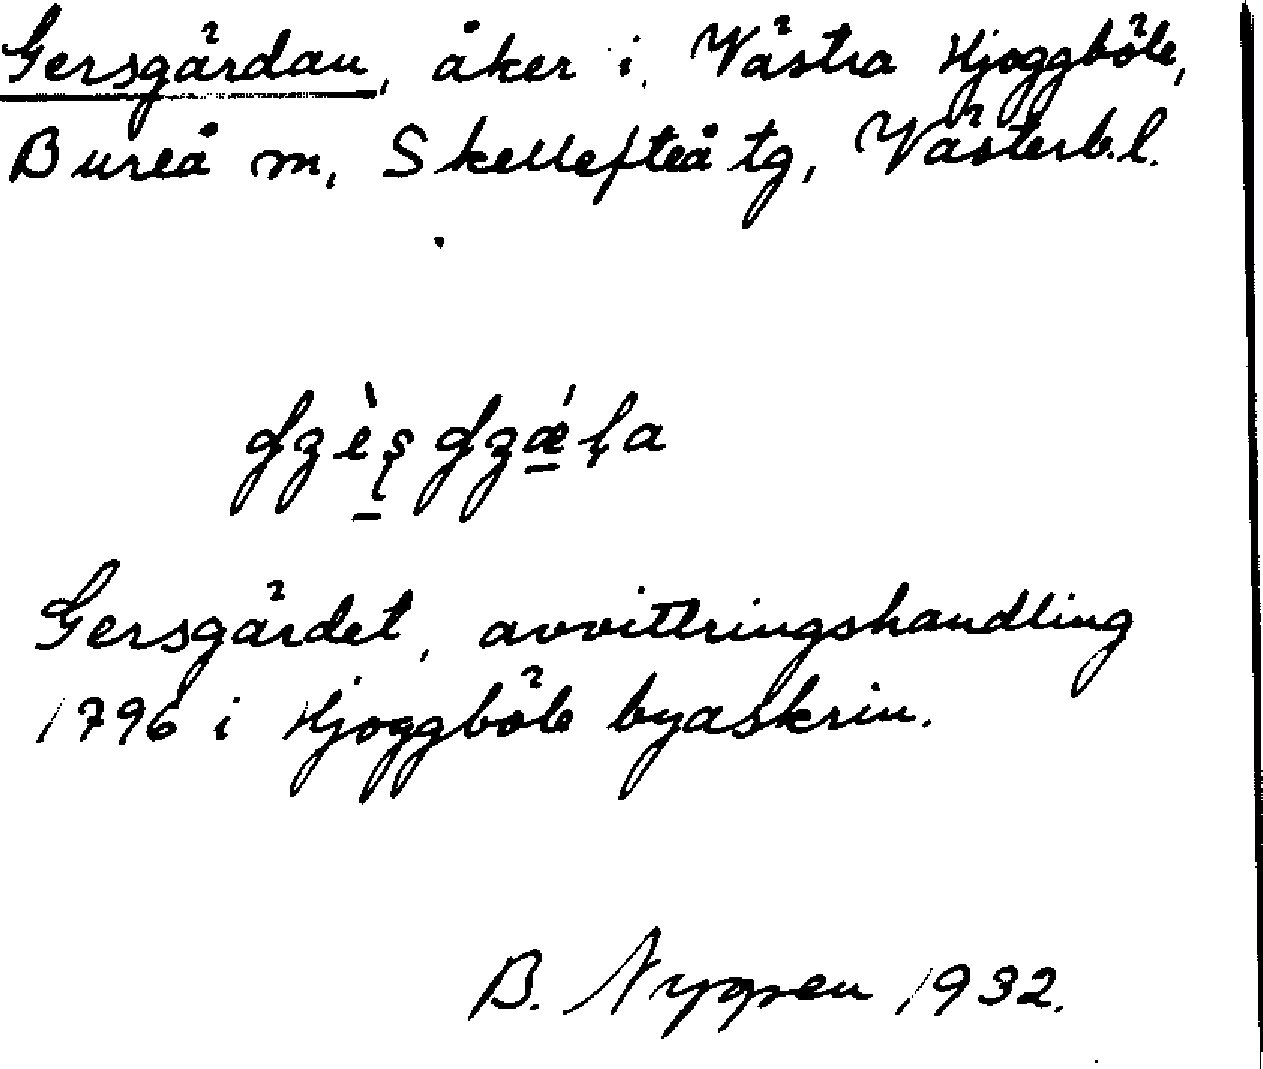 Gersgärdan, åker i Västra Hjoggböle,
Bureå m, Skellefteå tg, Västerb. l.
Gersgärdet, avvittringshandling
1796 i Hjoggböle byaskrin.
B. Nygren 1932.